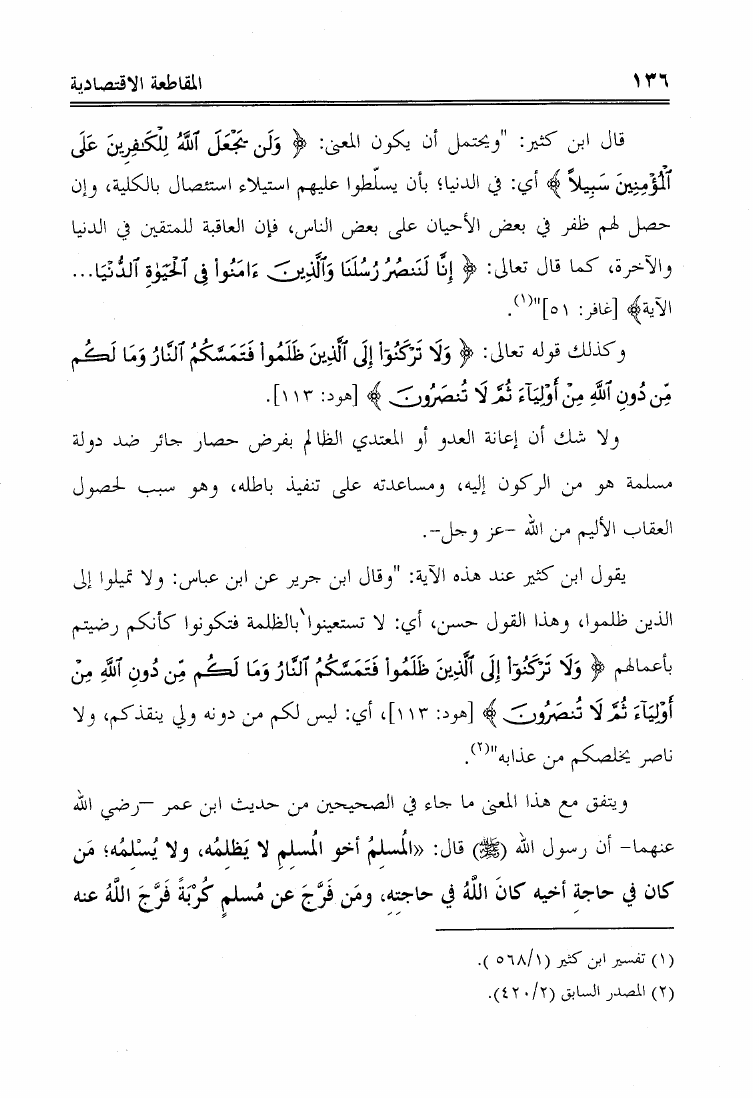 ١٣٦
المقاطعة الاقتصادية
قال ابن كثير: "ويحتمل أن يكون المعنى: ﴿ وَلَن يَجْعَلَ ٱللَّهُ لِلْكَـٰفِرِينَ عَلَى
ٱلْمُؤْمِنِينَ سَبِيلاً ﴾ أي: في الدنيا؛ بأن يسلّطوا عليهم استيلاء استئصال بالكلية، وإن
حصل لهم ظفر في بعض الأحيان على بعض الناس، فإن العاقبة للمتقين في الدنيا
والآخرة، كما قال تعالى: ﴿ إِنَّا لَنَنصُرُ رُسُلَنَا وَٱلَّذِينَ ءَامَنُواْ فِى ٱلْحَيَوٰةِ ٱلدُّنْيَا...
الآية﴾ [غافر: ٥١]"(١).
وكذلك قوله تعالى: ﴿ وَلَا تَرْكَنُوٓاْ إِلَى ٱلَّذِينَ ظَلَمُواْ فَتَمَسَّكُمُ ٱلنَّارُ وَمَا لَكُم
مِّن دُونِ ٱللَّهِ مِنْ أَوْلِيَآءَ ثُمَّ لَا تُنصَرُونَ ﴾ [هود: ١١٣].
ولا شك أن إعانة العدو أو المعتدي الظالم بفرض حصار جائر ضد دولة
مسلمة هو من الركون إليه، ومساعدته على تنفيذ باطله، وهو سبب لحصول
العقاب الأليم من الله –عز وجل–.
يقول ابن كثير عند هذه الآية: "وقال ابن جرير عن ابن عباس: ولا تميلوا إلى
الذين ظلموا، وهذا القول حسن، أي: لا تستعينوا بالظلمة فتكونوا كأنكم رضيتم
بأعمالهم ﴿ وَلَا تَرْكَنُوٓاْ إِلَى ٱلَّذِينَ ظَلَمُواْ فَتَمَسَّكُمُ ٱلنَّارُ وَمَا لَكُم مِّن دُونِ ٱللَّهِ مِنْ
أَوْلِيَآءَ ثُمَّ لَا تُنصَرُونَ ﴾ [هود: ١١٣]، أي: ليس لكم من دونه ولي ينقذكم، ولا
ناصر يخلصكم من عذابه"(٢).
ويتفق مع هذا المعنى ما جاء في الصحيحين من حديث ابن عمر –رضي الله
عنهما– أن رسول الله (ﷺ) قال: «المسلمُ أخو المُسلمِ لا يَظلِمُه، ولا يُسْلِمُه؛ مَن
كان في حاجةِ أخيه كانَ اللَّهُ في حاجتِه، ومَن فَرَّجَ عن مُسلمٍ كُرْبَةً فَرَّجَ اللَّهُ عنه
(١) تفسير ابن كثير (٥٦٨/١).
(٢) المصدر السابق (٤٢٠/٢).